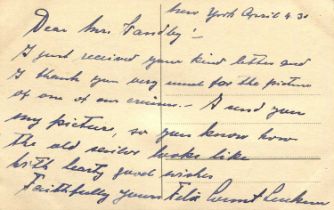 New York April 4.30
Dear Mrs. Sandby:-
I just received your kind letter and
I thank you very much for the picture
of one of our cruises - I send you
my picture, so you know how
the old sailor looks like
with hearty good wishes
Faithfully yours Felix Count Luckner